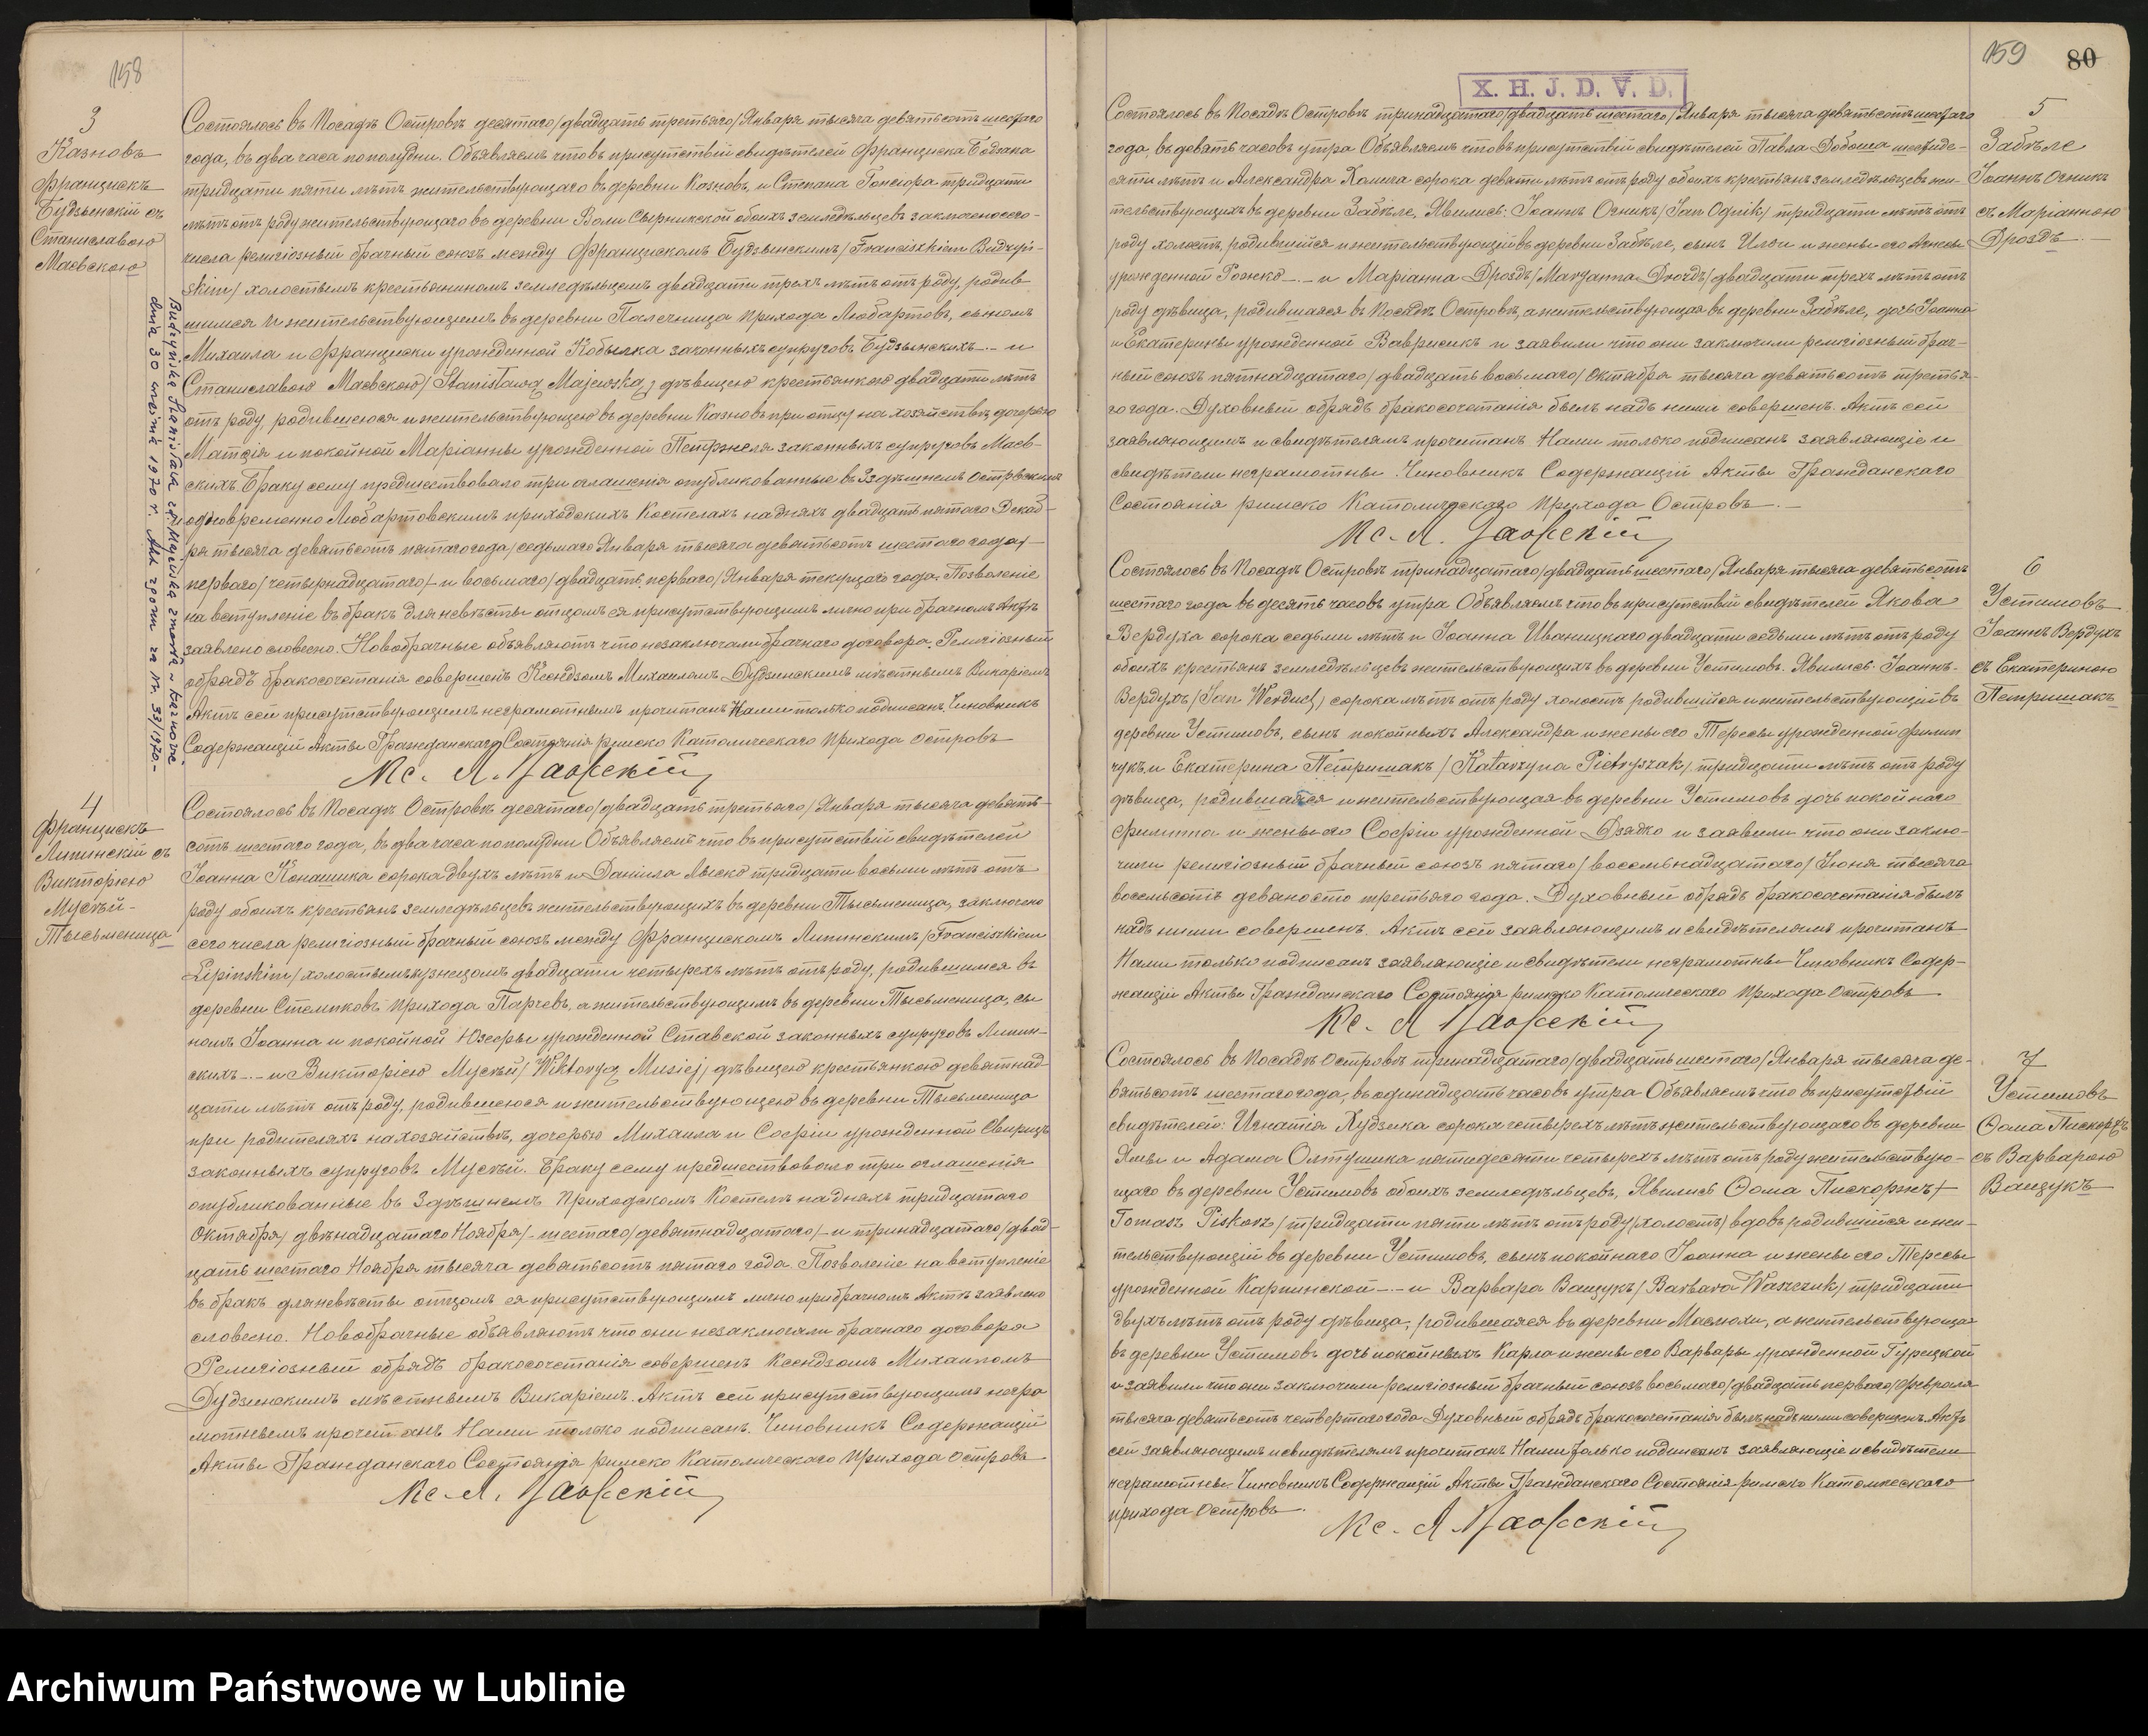 158
3
Казновъ
Францискъ
Будзынскій съ
Станиславою
Маевскою
Budzyńska Stanisława zd. Majewska zmarła w Kaznowie
dnia 30 1970 r. Akt zgonu za Nr. 33/1970.-
Состоялось въ Посадѣ Островѣ десятаго/двадцать третьяго/Января тысяча девятьсотъ шестаго
года, въ два часа пополудни. Объявляемъ что въ присутствіи свидѣтелей Франциска Бодзака
тридцати пяти лѣтъ жительствующаго въ деревни Казновъ, и Степана Гонсіора тридцати
лѣтъ отъ роду жительствующаго въ деревни Воли Сѣрницкой обоихъ земледѣльцевъ заключено сего-
числа религіозный брачный союзъ между Францискомъ Будзынскимъ/Franciszkiem Budzyń-
skim/холостымъ крестьяниномъ земледѣльцемъ двадцати трехъ лѣтъ отъ роду, родив-
шимся и жительствующимъ въ деревни Палечница прихода Любартовъ, сыномъ
Михаила и Франциски урожденной Кобылка законныхъ супруговъ Будзынскихъ.- и
Станиславою Маевскою/Stanisławą Majewską/дѣвицею крестьянкою двадцати лѣтъ
отъ роду, родившеюся и жительствующею въ деревни Казновъ при отцу на хозяйствѣ дочерью
Матѳія и покойной Маріанны урожденной законныхъ супруговъ Маев-
скихъ. Браку сему предшествовало три оглашенія опубликованные въ Здѣшнемъ Островскимъ
и одновременно Любартовскимъ приходскихъ Костелахъ на дняхъ двадцать пятаго Декаб-
ря тысяча девятьсотъ пятаго года/седьмаго Января тысяча девятьсотъ шестаго года/-
перваго/четырнадцатаго/-и восьмаго/двадцать перваго/Января текущаго года. Позволеніе
на вступленіе въ бракъ для невѣсты отцомъ ея присутствующимъ лично при брачномъ Актѣ
заявлено словесно. Новобрачные объявляютъ что незаключали брачнаго договора. Религіозный
обрядъ бракосочетанія совершенъ Ксендзомъ Михаиломъ Дудзинскимъ мѣстнымъ Викаріемъ
Актъ сей присутствующимъ неграмотнымъ прочитанъ Нами только подписанъ. Чиновникъ
Содержащій Акты Гражданскаго Состоянія римско Католическаго прихода Островъ
Кс. А.
4
Францискъ
Липинскій съ
Викторіею
Мусѣй-
Тысьменица
Состоялось въ Посадѣ Островѣ десятаго/двадцать третьяго/Января тысяча девять-
сотъ шестаго года, въ два часа пополудни Объявляемъ что въ присутствіи свидѣтелей
Іоанна Конашика сорока двухъ лѣтъ и Даніила Лыско тридцати восьми лѣтъ отъ
роду обоихъ крестьянъ земледѣльцевъ жительствующихъ въ деревни Тысьменица, заключено
сего числа религіозный брачный союзъ между Францискомъ Липинскимъ/Franciszkiem
Lipinskim/холостымъ кузнецомъ двадцати четырехъ лѣтъ отъ роду, родившимся въ
деревни Стемпковъ прихода Парчевъ, а жительствующимъ въ деревни Тысьменица, сы-
номъ Іоанна и покойной Юзефы урожденной Ставской законныхъ супруговъ Липин-
скихъ.- и Викторіею Мусѣй/Wiktoryą Musiej/дѣвицею крестьянкою девятнад
цати лѣтъ отъ роду, родившеюся и жительствующею въ деревни Тысьменица
при родителяхъ на хозяйствѣ, дочерью Михаила и Софіи урожденной Свирщъ
законныхъ супруговъ Мусѣй. Браку сему предшествовало три оглашенія
опубликованные въ Здѣшнемъ приходскомъ Костелѣ на дняхъ тридцатаго
Октября/двѣнадцатаго Ноября/-шестаго/девятнадцатаго/-и тринадцатаго/двад-
цать шестаго Ноября тысяча девятьсотъ пятаго года. Позволеніе на вступленіе
въ бракъ для невѣсты отцомъ ея присутствующимъ лично при брачномъ Актѣ заявлено
словесно. Новобрачные объявляютъ что они незаключали брачнаго договора
Религіозный обрядъ бракосочетанія совершенъ Ксендзомъ Михаиломъ
Дудзинскимъ мѣстнымъ Викаріемъ. Актъ сей присутствующимъ негра
мотнымъ прочитанъ Нами только подписанъ. Чиновникъ Содержащій
Акты Гражданскаго Состоянія римско Католическаго прихода Островъ
Кс. А.
159
80
X. H. J. D. V. D.
5
Забѣле
Іоаннъ Огникъ
съ Маріанною
Дроздъ.-
Состоялось въ Посадѣ Островѣ тринадцатаго/двадцать шестаго/Января тысяча девятьсотъ шестаго
года, въ девять часовъ утра Объявляемъ что въ присутствіи свидѣтелей Павла Добоша шестиде-
сяти лѣтъ и Александра Хомича сорока девяти лѣтъ отъ роду обоихъ крестьянъ земледѣльцевъ жи-
тельствующихъ въ деревни Забѣле, Явились: Іоаннъ Огникъ/Jan Ognik/тридцати лѣтъ отъ
роду холостъ, родившійся и жительствующій въ деревни Забѣле, сынъ Ильи и жены его Агнесы
урожденной Рожко.- и Маріанна Дроздъ/Maryanna Drozd/двадцати трехъ лѣтъ отъ
роду дѣвица, родившаяся въ Посадѣ Островѣ, а жительствующая въ деревни Забѣле, дочь Іоанна
и Екатерины урожденной Ваврисикъ и заявили что они заключили религіозный брач-
ный союзъ пятнадцатаго/двадцать восьмаго/Октября тысяча девятьсотъ третья-
го года. Духовный обрядъ бракосочетанія былъ надъ ними совершенъ. Актъ сей
заявляющимъ и свидѣтелямъ прочитанъ Нами только подписанъ заявляющіе и
свидѣтели неграмотны. Чиновникъ Содержащій Акты Гражданскаго
Состоянія римско Католическаго прихода Островъ.-
Кс. А.
6
Устимовъ
Іоаннъ Вердухъ
съ Екатериною
Петришакъ
Состоялось въ Посадѣ Островѣ тринадцатаго/двадцать шестаго/Января тысяча девятьсотъ
шестаго года въ десять часовъ утра Объявляемъ что въ присутствіи свидѣтелей Якова
Вердуха сорока седьми лѣтъ и Іоанна Иваницкаго двадцати седьми лѣтъ отъ роду
обоихъ крестьянъ земледѣльцевъ жительствующихъ въ деревни Устимовъ. Явились. Іоаннъ-
Вердухъ/Jan Werduch/сорока лѣтъ отъ роду холостъ родившійся и жительствующій въ
деревни Устимовъ, сынъ покойныхъ Александра и жены его Тересы урожденной Филип
чукъ и Екатерина Петришакъ/Katarzyna Pietryszak/тридцати лѣтъ отъ роду
дѣвица, родившаяся и жительствующая въ деревни Устимовъ дочь покойнаго
Филиппа и жены его Софіи урожденной Дзядко и заявили что они заклю-
чили религіозный брачный союзъ пятаго/восемьнадцатаго/Іюня тысяча
восемьсотъ девяносто третьяго года. Духовный обрядъ бракосочетанія былъ
надъ ними совершенъ. Актъ сей заявляющимъ и свидѣтелямъ прочитанъ
Нами только подписанъ заявляющіе и свидѣтели неграмотны Чиновникъ Содер-
жащій Акты Гражданскаго Состоянія римско Католическаго прихода Островъ
Кс. А.
7
Устимовъ
Ѳома Пискоржъ
съ Варварою
Ващукъ
Состоялось въ Посадѣ Островѣ тринадцатаго/двадцать шестаго/Января тысяча де-
вятьсотъ шестаго года, въ одинадцать часовъ утра Объявляемъ что въ присутствіи
свидѣтелей: Игнатія Худзика сорока четырехъ лѣтъ жительствующаго въ деревни
и Адама Олтушика пятидесяти четырехъ лѣтъ отъ роду жительствую-
щаго въ деревни Устимовъ обоихъ земледѣльцевъ, Явились Ѳома Пискоржъ/
Tomasz Piskorz/тридцати пяти лѣтъ отъ роду/холостъ/вдовъ родившійся и жи-
тельствующій въ деревни Устимовъ, сынъ покойнаго Іоанна и жены его Тересы
урожденной Карпинской.- и Варвара Ващукъ/Barbara Waszczuk/тридцати
двухъ лѣтъ отъ роду дѣвица, родившаяся въ деревни Маслюхи, а жительствующая
въ деревни Устимовъ дочь покойныхъ Карла и жены его Варвары урожденной Гурецкой
и заявили что они заключили религіозный брачный союзъ восьмаго/двадцать перваго/Февраля
тысяча девятьсотъ четвертаго года Духовный обрядъ бракосочетанія былъ надъ ними совершенъ. Актъ
сей заявляющимъ и свидѣтелямъ прочитанъ Нами только подписанъ заявляющіе и свидѣтели
неграмотны. Чиновникъ Содержащій Акты Гражданскаго Состоянія римско Католическаго
прихода Островъ.
Кс. А.
Archiwum Państwowe w Lublinie